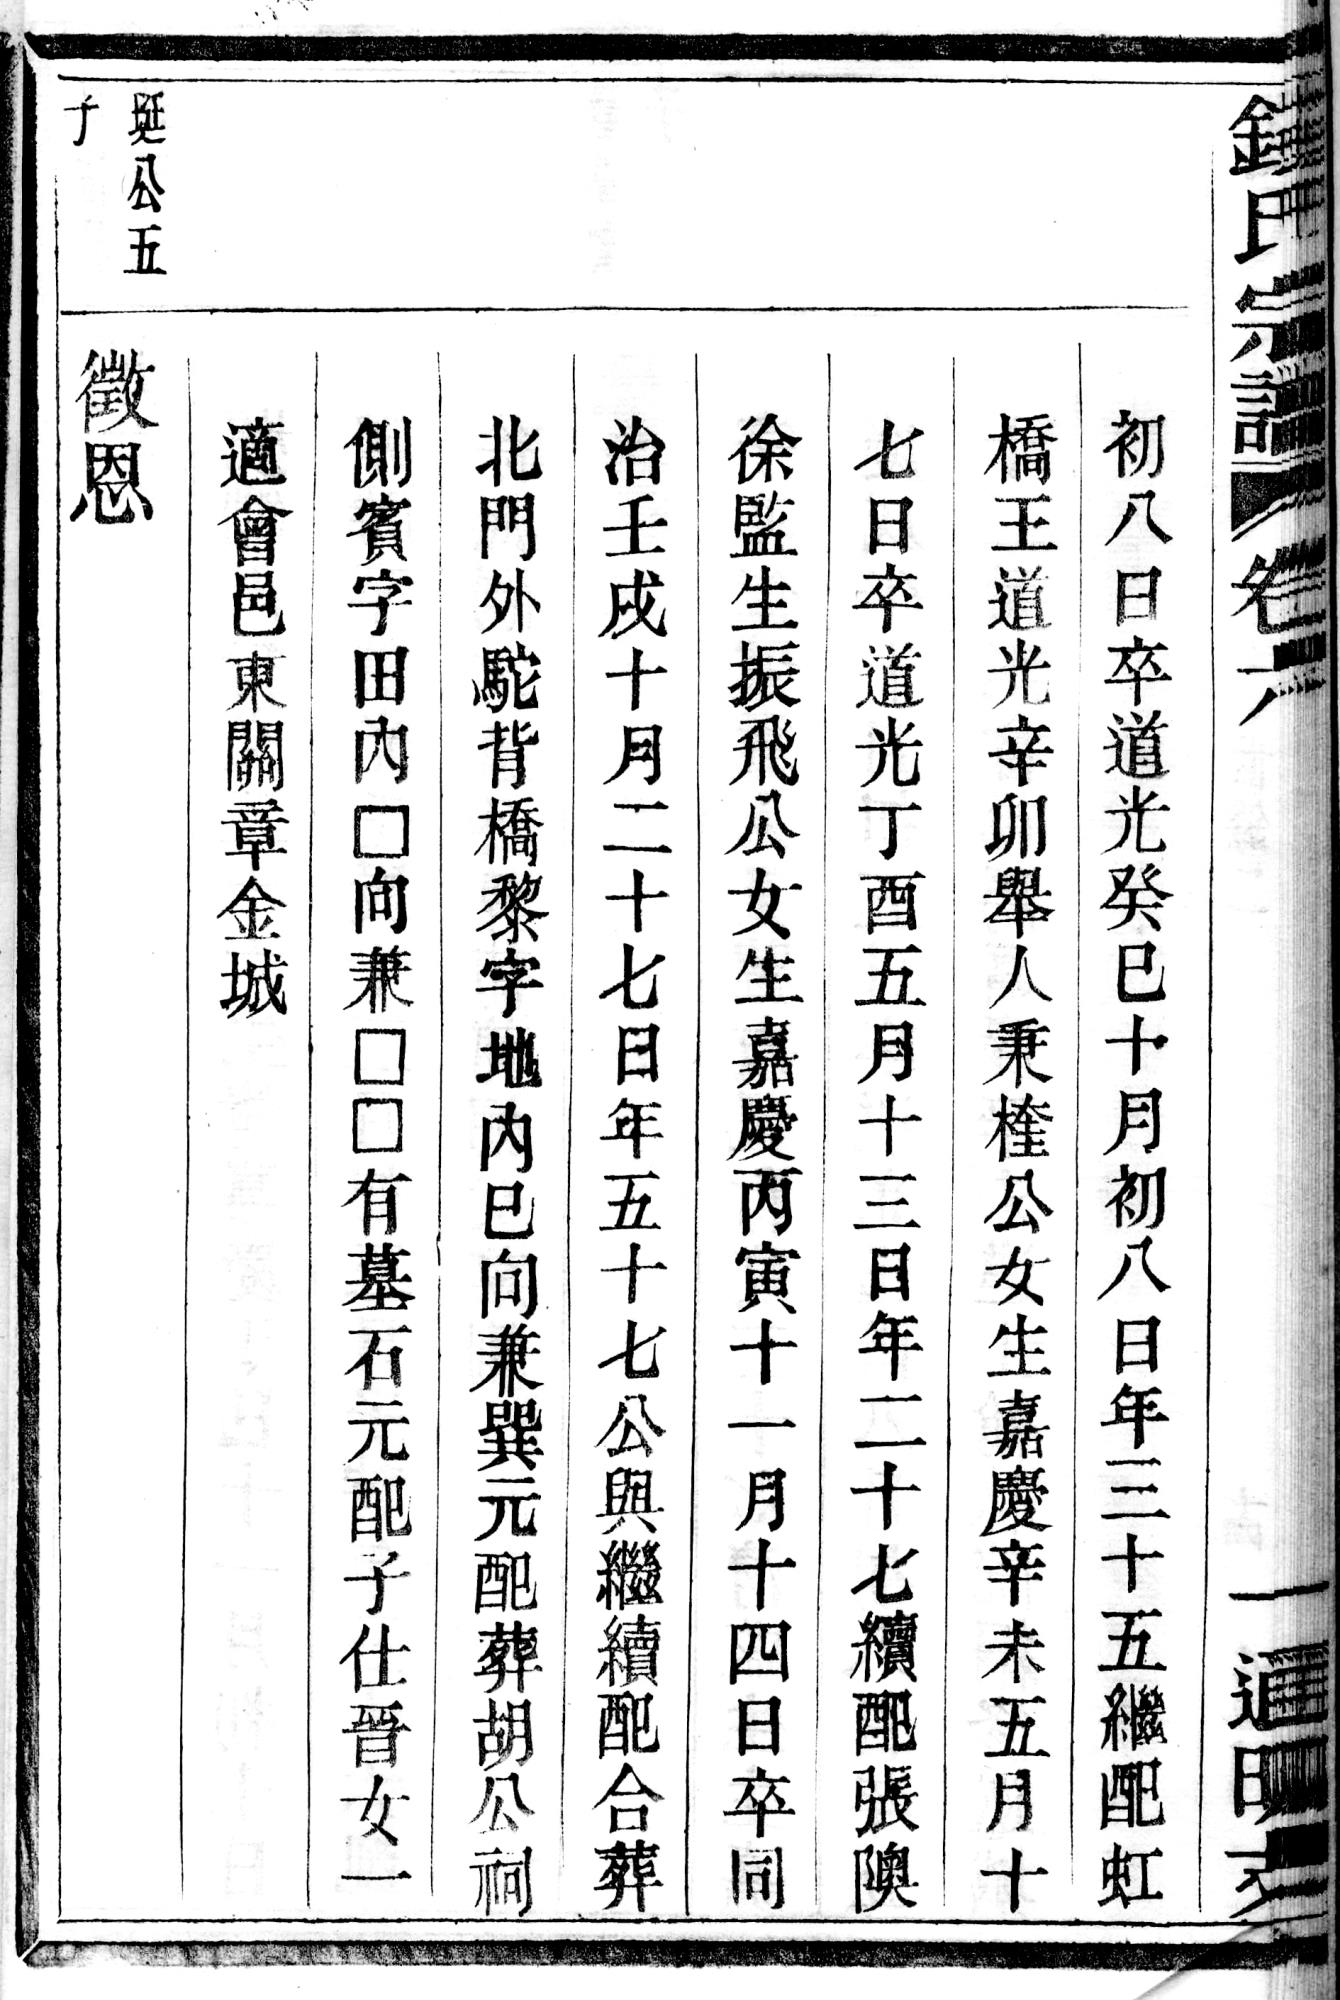 鍾氏宗譜 卷六 一 通明支
初八日卒道光癸巳十月初八日年三十五繼配虹
橋王道光辛卯舉人秉榷公女生嘉慶辛未五月十
七日卒道光丁酉五月十三日年二十七續配張隩
徐監生振飛公女生嘉慶丙寅十一月十四日卒同
治壬戌十月二十七日年五十七公與繼續配合葬
北門外駝背橋黎字地內巳向兼巽元配葬胡公祠
側賓字田內□向兼□□有墓石元配子仕晉女一
適會邑東關章金城
珽公五
子
徵恩